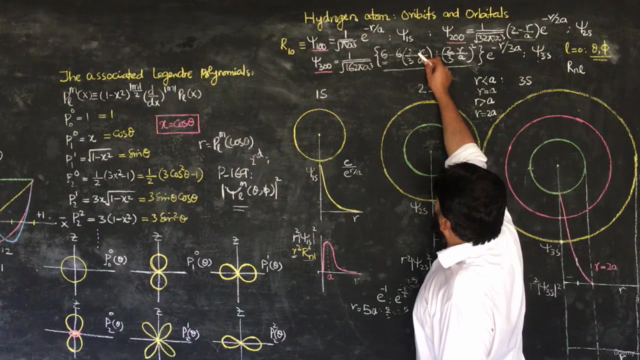 Hydrogen atom: Orbits and Orbitals
R₁₀ ≡ Ψ₁₀₀ = 1/√(πa³) e^(-r/a) : Ψ₁s : Ψ₂₀₀ = 1/√(32πa³) (2 - r/a) e^(-r/2a) : Ψ₂s
Ψ₃₀₀ = 1/√(162πa³) { 6 - 6 } e^(-r/3a) : Ψ₃s
l=0: θ, φ
Rnl
The associated Legendre Polynomials:
Pₗᵐ(x) ≡ (1-x²)^(|m|/2) (d/dx)^|m| Pₗ(x)
P₀⁰ = 1 = 1
P₁⁰ = x = cosθ
x = cosθ
P₁¹ = √(1-x²) = sinθ
= 1/2 (3x²-1) = 1/2 (3cos²θ-1)
= 3x√(1-x²) = 3sinθcosθ
P₂² = 3(1-x²) = 3sin²θ
r = Pₗᵐ(cosθ)
P-167:
|Yₗᵐ(θ,φ)|²
1s
3s
r<a :
r=a :
r>a
r=2a
Ψ₁s
r
r²|Ψ₁s|²
r²R²nl
a
r
Ψ₂s
r²|Ψ₂s|²
r = 5a :
Ψ₃s
r²|Ψ₃s|²
r=2a
r
+1
x
z
P₀⁰(θ)
z
P₁⁰(θ)
z
P₁¹(θ)
z
P₂⁰(θ)
z
P₂¹(θ)
z
P₂²(θ)